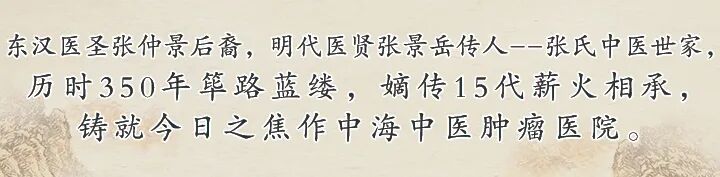 东汉医圣张仲景后裔，明代医贤张景岳传人--张氏中医世家，
历时350年筚路蓝缕，嫡传15代薪火相承，
铸就今日之焦作中海中医肿瘤医院。